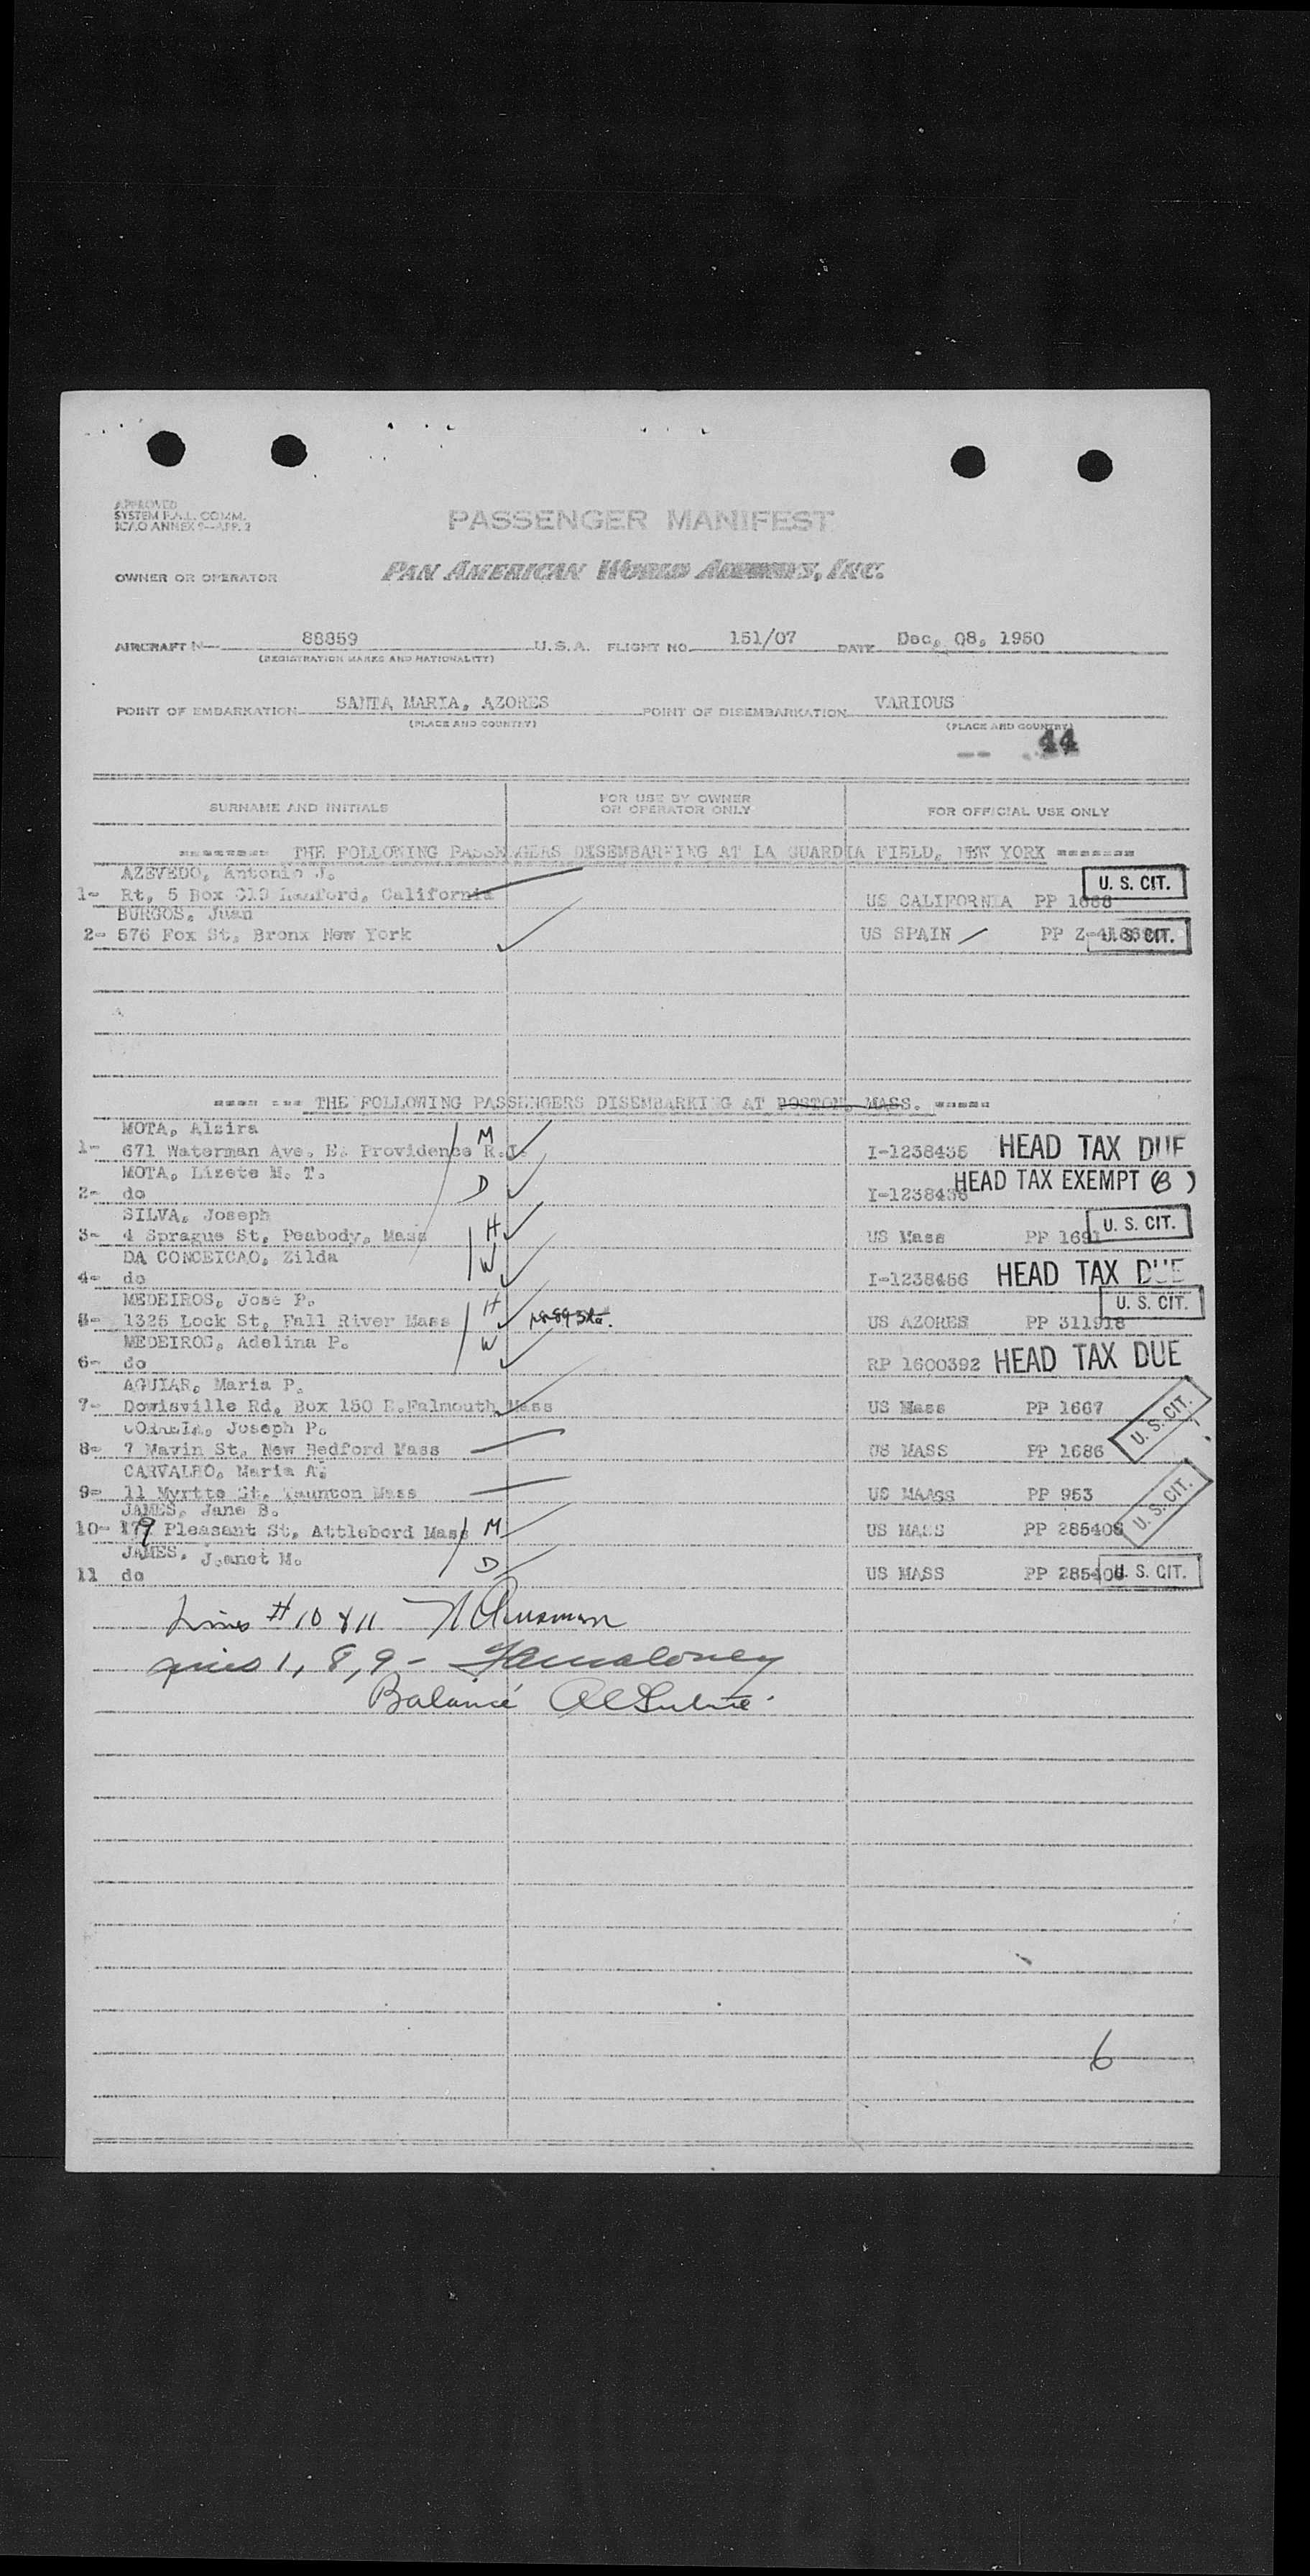 APPROVED
SYSTEM F.A.L. COMM.
ICAO ANNEX 9—APP. 2
PASSENGER MANIFEST
OWNER OR OPERATOR PAN AMERICAN WORLD AIRWAYS, INC.
AIRCRAFT N— 88859 U.S.A. FLIGHT NO. 151/07 DATE Dec. 08, 1950
(REGISTRATION MARKS AND NATIONALITY)
POINT OF EMBARKATION SANTA MARIA, AZORES POINT OF DISEMBARKATION VARIOUS
(PLACE AND COUNTRY) (PLACE AND COUNTRY)
44
SURNAME AND INITIALS FOR USE BY OWNER OR OPERATOR ONLY FOR OFFICIAL USE ONLY
======= THE FOLLOWING PASSENGERS DISEMBARKING AT LA GUARDIA FIELD, NEW YORK =======
AZEVEDO, Antonio J.
1- Rt, 5 Box California US CALIFORNIA PP 1668 U. S. CIT.
BURGOS, Juan
2- 576 Fox St, Bronx New York US SPAIN PP U. S. CIT.
==== === THE FOLLOWING PASSENGERS DISEMBARKING AT BOSTON, MASS. =====
MOTA, Alzira
1- 671 Waterman Ave. E. Providence R.I. M I-1238435 HEAD TAX DUE
MOTA, Lizete M. T.
2- do D I-1238436 HEAD TAX EXEMPT (B)
SILVA, Joseph
3- 4 Sprague St, Peabody, Mass H US Mass PP 1691 U. S. CIT.
DA CONCEICAO, Zilda
4- do W I-1238456 HEAD TAX DUE
MEDEIROS, Jose P.
5- 1325 Lock St, Fall River Mass H US AZORES PP 311918 U. S. CIT.
MEDEIROS, Adelina P.
6- do W RP 1600392 HEAD TAX DUE
AGUIAR, Maria P.
7- Dowisville Rd, Box 150 E.Falmouth Mass US Mass PP 1667 U. S. CIT.
Joseph P.
8- 7 Mavin St, New Bedford Mass US MASS PP 1686
CARVALHO, Maria A.
9- 11 Myrtte St, Taunton Mass US MAASS PP 953 U. S. CIT.
JAMES, Jane B.
10- 179 Pleasant St, Attlebord Mass M US MASS PP 285408
JAMES, Jeanet M.
11 do D US MASS PP U. S. CIT.
Lines # 10 & 11
Lines 1, 8, 9 -
Balance
6